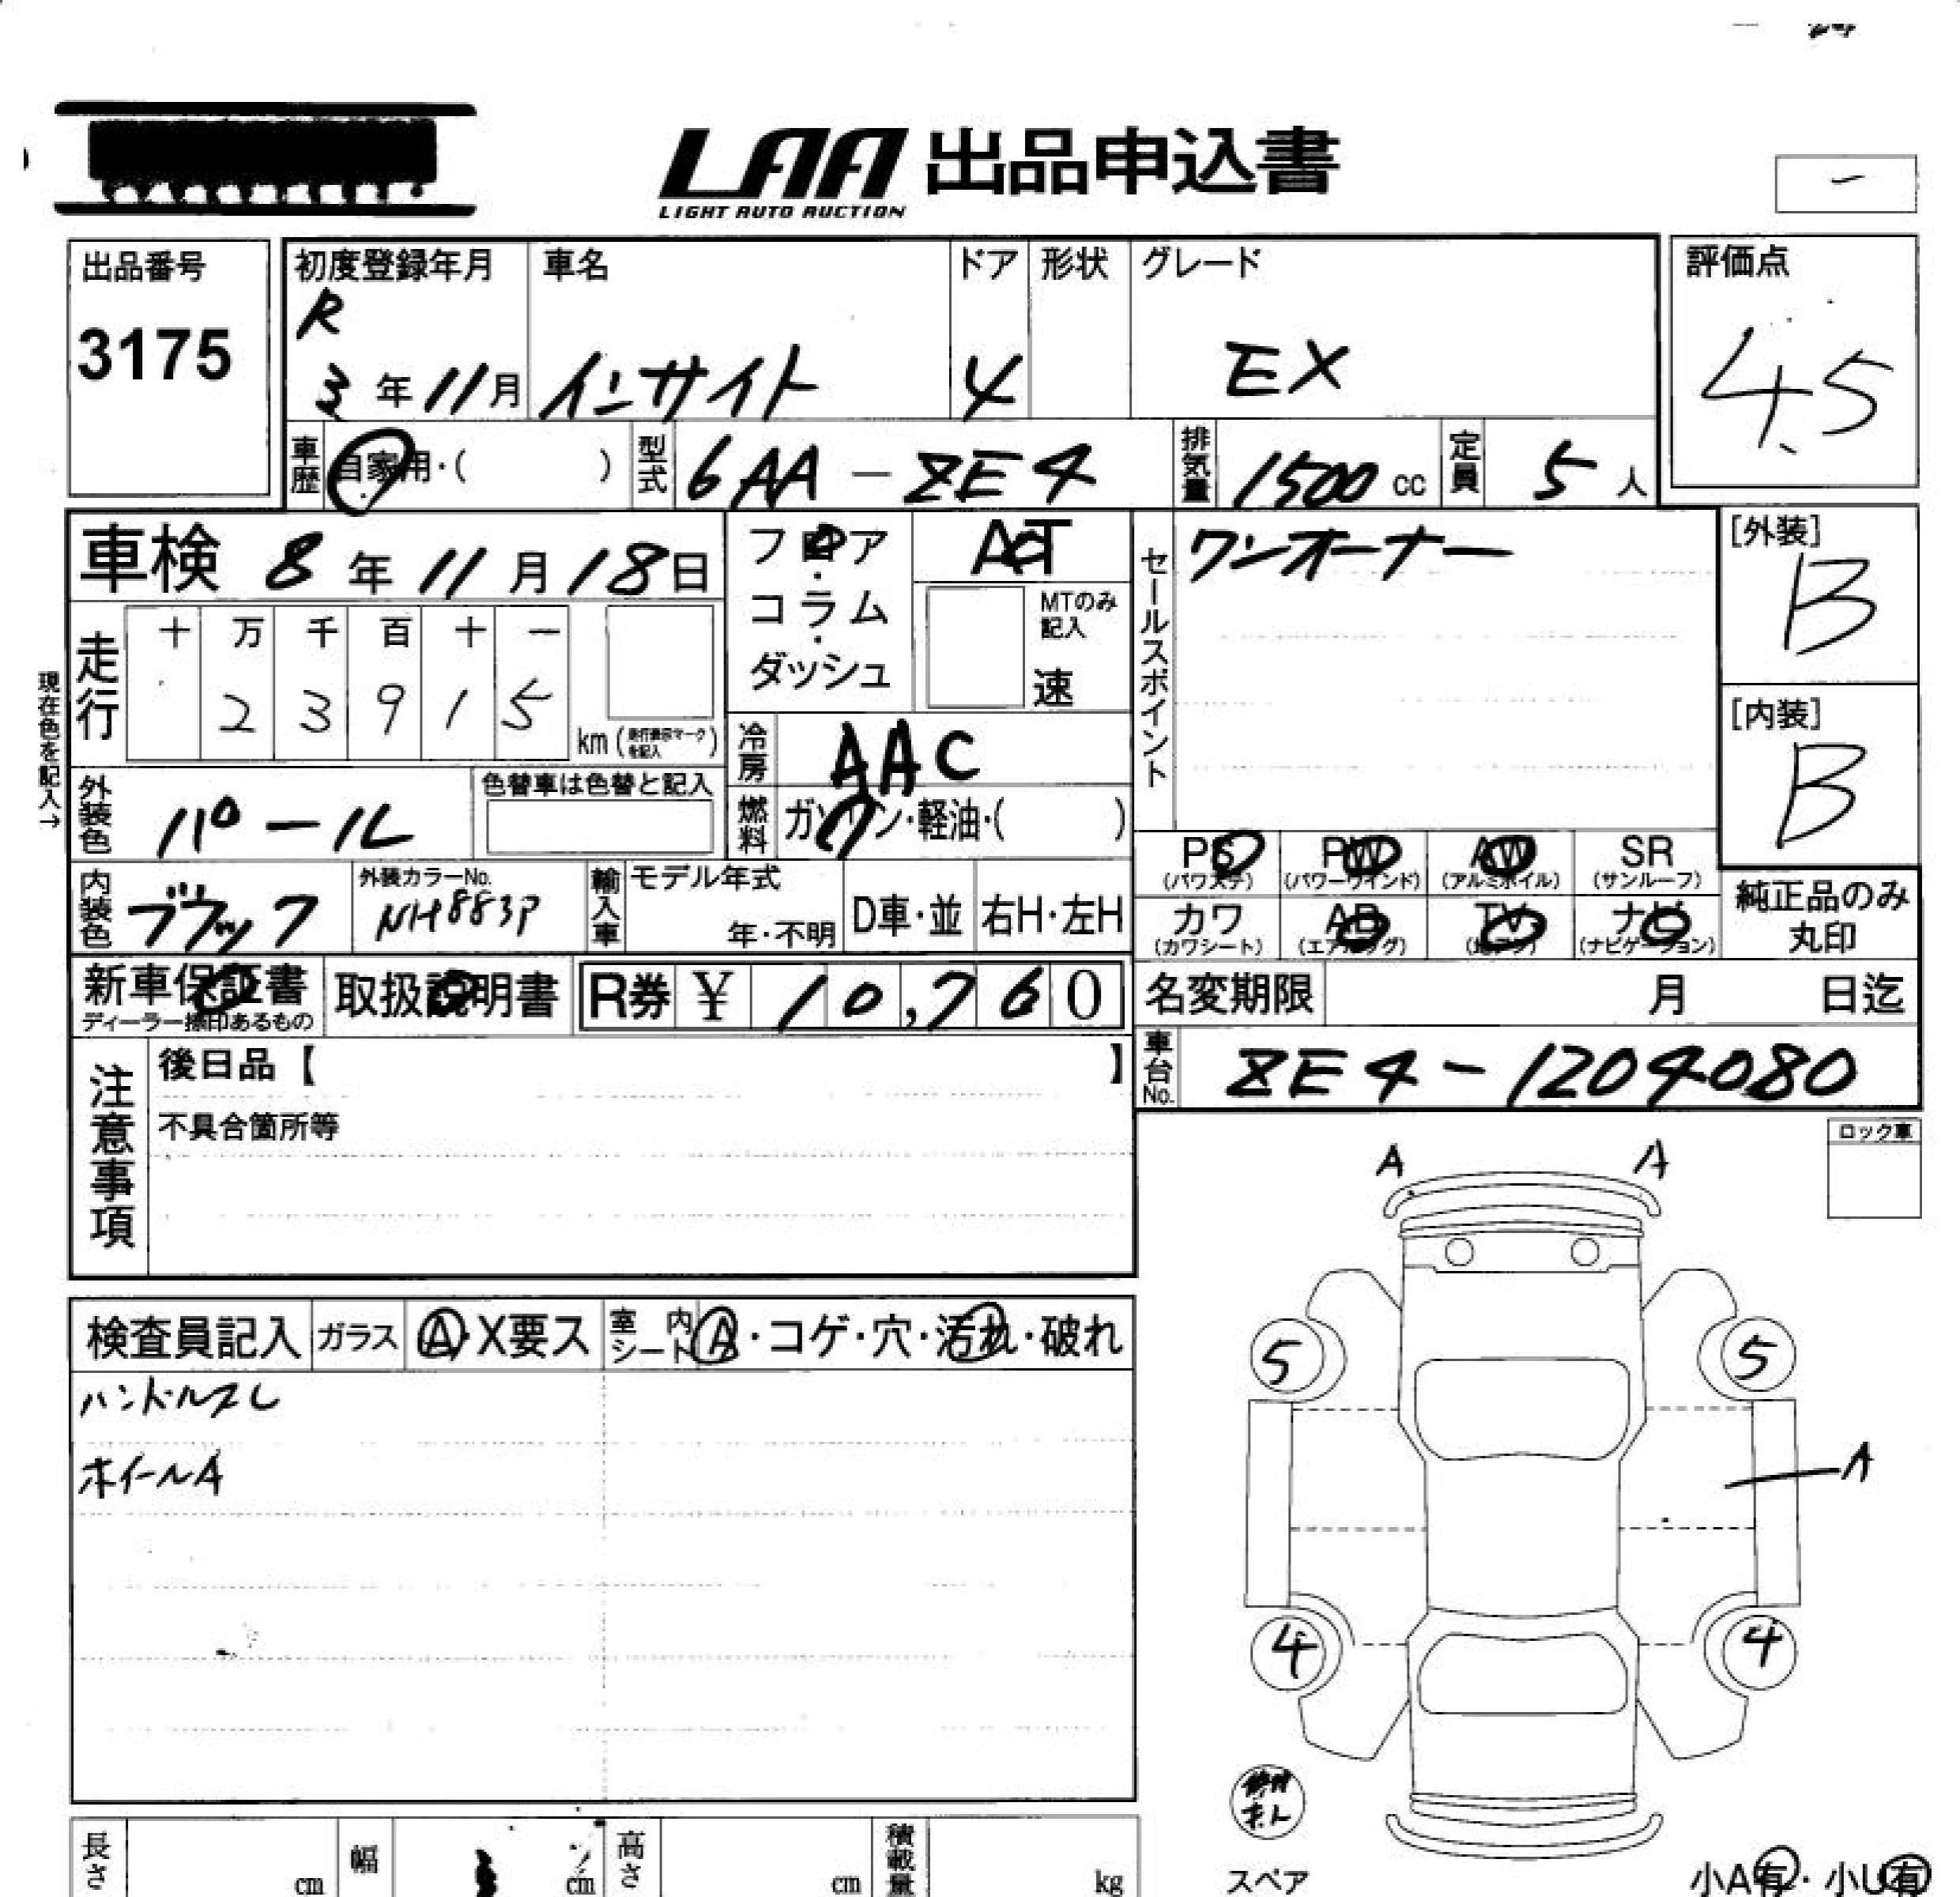 LAA 出品申込書
LIGHT AUTO AUCTION
出品番号
3175
初度登録年月
R
3年11月
車名
インサイト
ドア
4
形状
グレード
EX
評価点
4.5
車歴
自家用・( )
型式
6AA-ZE4
排気量
1500 cc
定員
5人
車検 8年11月18日
フロア・コラム・ダッシュ
AT
MTのみ記入
速
セールスポイント
ワンオーナー
[外装]
B
[内装]
B
現在色を記入→
走行
十 万 千 百 十 一
2 3 9 1 5
km
冷房
AAC
外装色
パール
色替車は色替と記入
燃料
ガソリン・軽油・( )
PS
(パワステ)
PW
(パワーウインド)
AW
(アルミホイル)
SR
(サンルーフ)
内装色
ブラック
外装カラーNo.
NH883P
輸入車
モデル年式
年・不明
D車・並
右H・左H
カワ
(カワシート)
AB
(エアバッグ)
TV
ナビ
(ナビゲーション)
純正品のみ
丸印
新車保証書
ディーラー捺印あるもの
取扱説明書
R券 ¥ 10,760
名変期限 月 日迄
車台No.
ZE4-1204080
注意事項
後日品【 】
不具合箇所等
ロック車
A A
検査員記入
ガラス
A・X要ス
室内
シート
A・コゲ・穴・汚れ・破れ
ハンドルスレ
ホイールA
5 5
A
4 4
スペア
小A有・小U有
長さ cm
幅 cm
高さ cm
積載量 kg